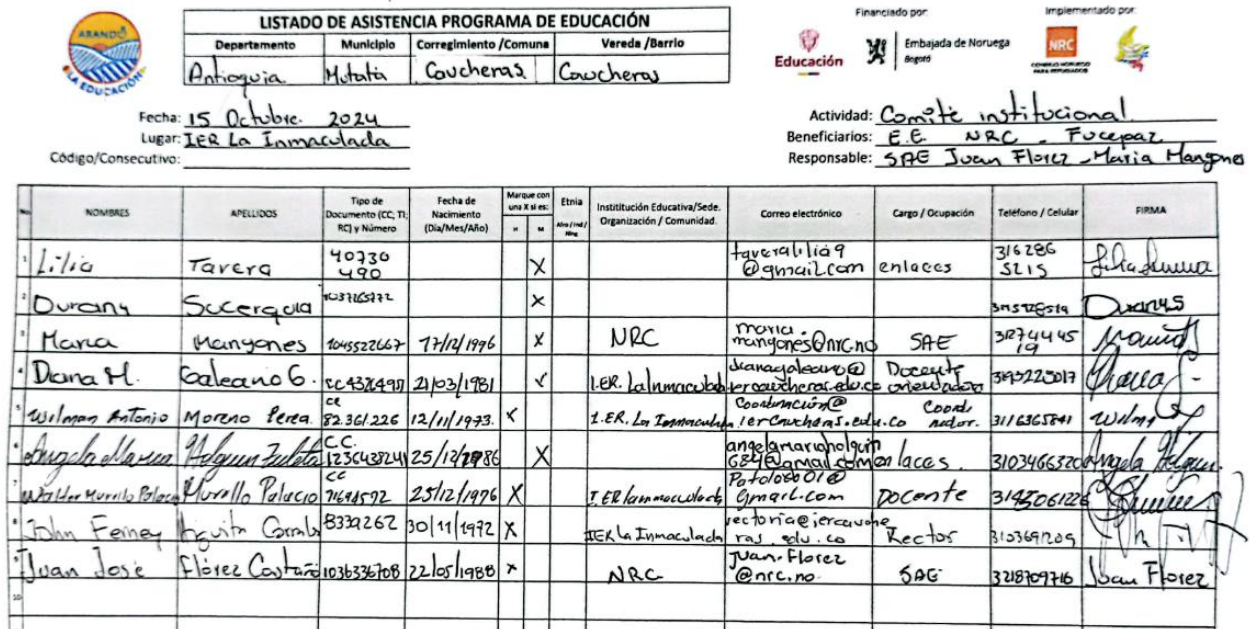 ARANDO
LA EDUCACIÓN
LISTADO DE ASISTENCIA PROGRAMA DE EDUCACIÓN
Departamento Municipio Corregimiento /Comuna Vereda /Barrio
Antioquia Mutatá Caucheras Caucheras
Financiado por:
Implementado por:
Educación
Embajada de Noruega
Bogotá
NRC
CONSEJO NORUEGO
PARA REFUGIADOS
Fecha: 15 Octubre. 2024
Lugar: IER La Inmaculada
Código/Consecutivo:
Actividad: Comité institucional.
Beneficiarios: E.E. NRC - Fucepaz
Responsable: SAE Juan Florez - Maria Mangones
No. NOMBRES APELLIDOS Tipo de Documento (CC, TI, RC) y Número Fecha de Nacimiento (Día/Mes/Año) Marque con una X si es: H M Etnia Afro / Ind / Ning Instititución Educativa/Sede. Organización / Comunidad. Correo electrónico Cargo / Ocupación Teléfono / Celular FIRMA
1 Lilia Tavera 40730 490 X taveralilia9 @gmail.com enlaces 316286 5215
2 Durany Sucerquia X Duranys
3 Maria Mangones 1045522667 17/12/1996 X NRC maria. mangones@nrc.no SAE 31274445 19
4 Diana M. Galeano G. 21/03/1981 I.ER. La Inmaculada Docente orientadora
5 Wilman Antonio Moreno Perea. cc 82.361.226 12/11/1973. X I.ER. La Inmaculada Coordinación@ iercaucheras.edu.co Coordi nador. 3116365841 Wilmg
6 Angela Maria Holguin Zuleta C.C. 1236438241 25/12/1986 X angelamariaholguin 684@gmail.com enlaces. 3103466320 Angela Holguin
7 Walter Murillo Palacio Murillo Palacio cc 25/12/1976 X I.ER Inmaculada gmail.com Docente
8 John Ferney 8339262 30/11/1972 X IER La Inmaculada Rector 3103691209
9 Juan José Flórez Castaño 1036336708 22/05/1988 x NRC Juan.Florez @nrc.no. SAE 3218709716 Juan Florez
10